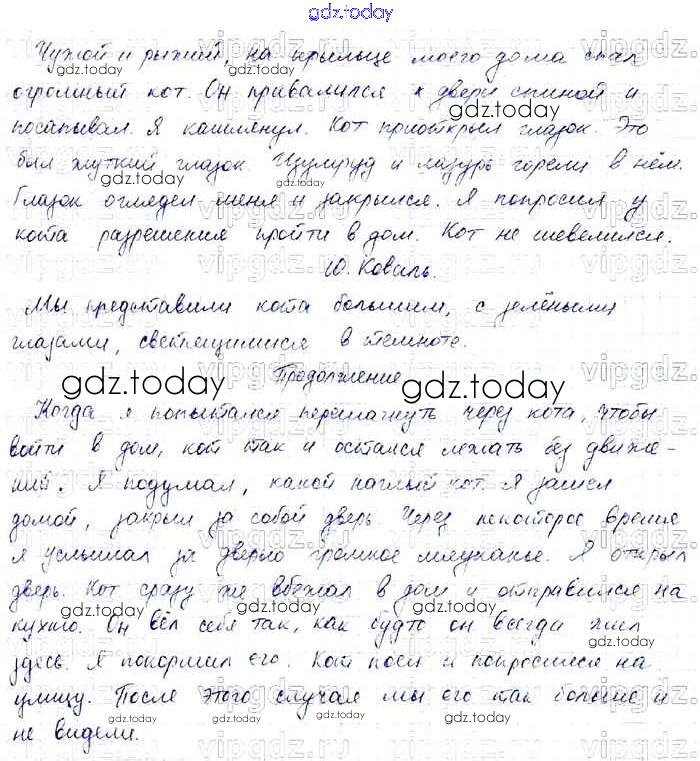 gdz.today
Чужой и рыжий, на крыльце моего дома спал
огромный кот. Он привалился к двери спиной и
посапывал. Я кашлянул. Кот приоткрыл глазок. Это
был жуткий глазок. Изумруд и лазурь горели в нём.
Глазок оглядел меня и закрылся. Я попросил у
кота разрешения пройти в дом. Кот не шевелился.
Ю. Коваль.
Мы представили кота большим, с зелёными
глазами, светящимися в темноте.
Продолжение
Когда я попытался перешагнуть через кота, чтобы
войти в дом, кот так и остался лежать без движе-
ний. Я подумал, какой наглый кот. Я зашел
домой, закрыл за собой дверь. Через некоторое время
я услышал за дверью громкое мяуканье. Я открыл
дверь. Кот сразу же вбежал в дом и отправился на
кухню. Он вёл себя так, как будто он всегда жил
здесь. Я покормил его. Кот поел и попросился на
улицу. После этого случая мы его так больше и
не видели.